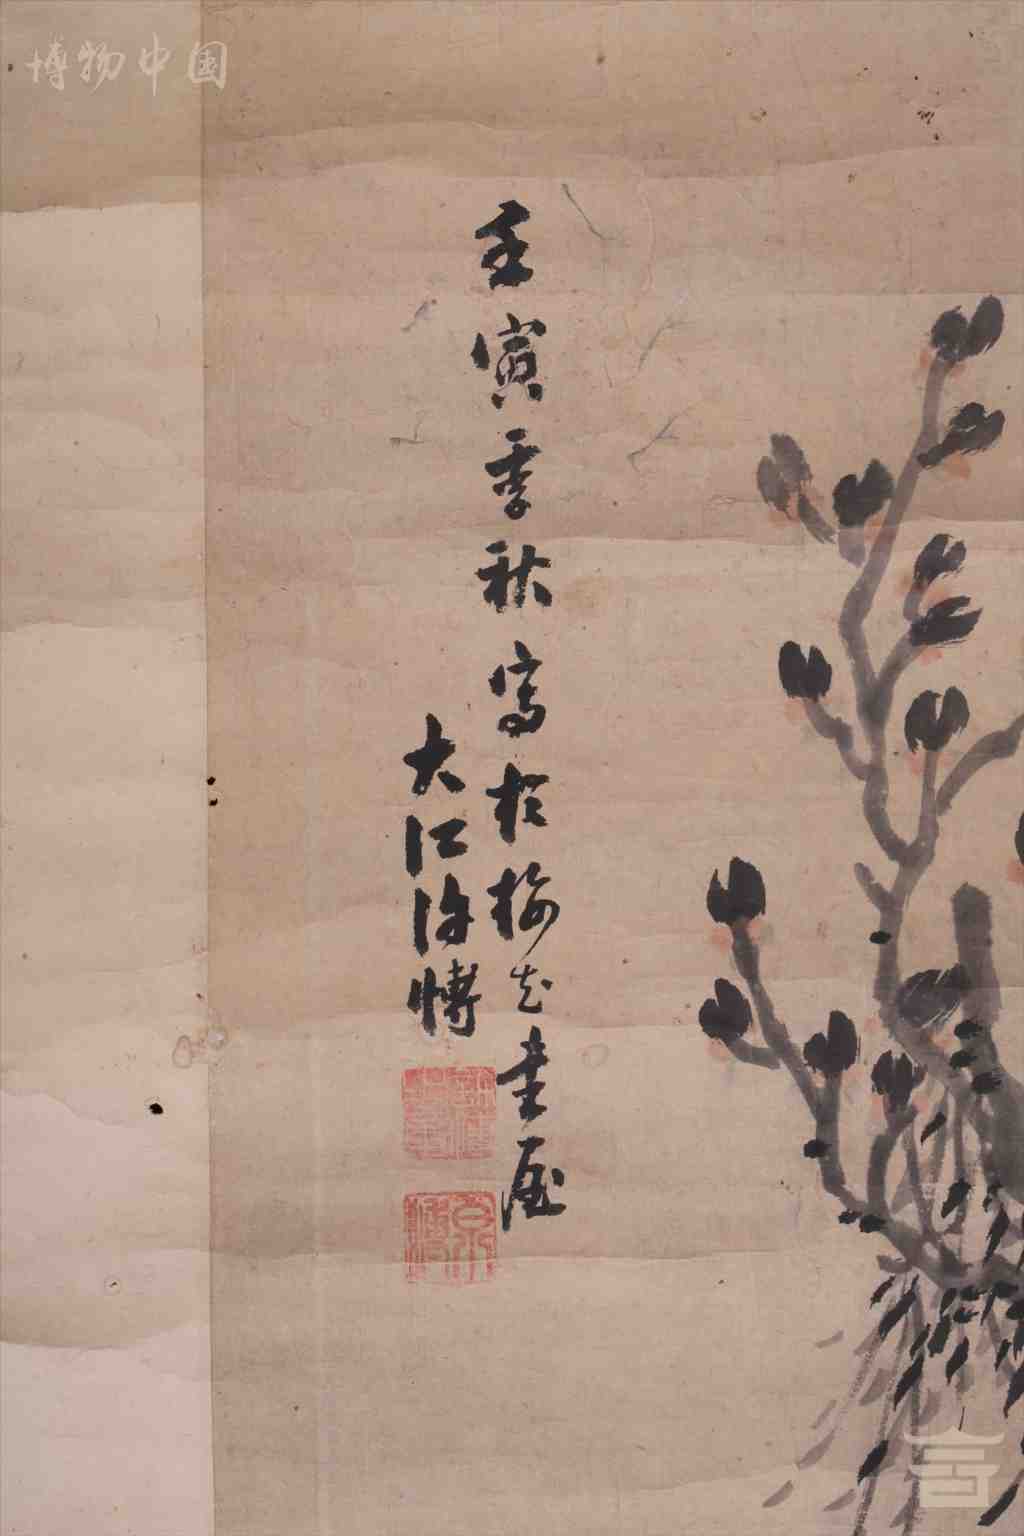 博物中国
壬寅季秋写於梅花画屋
大江许愽